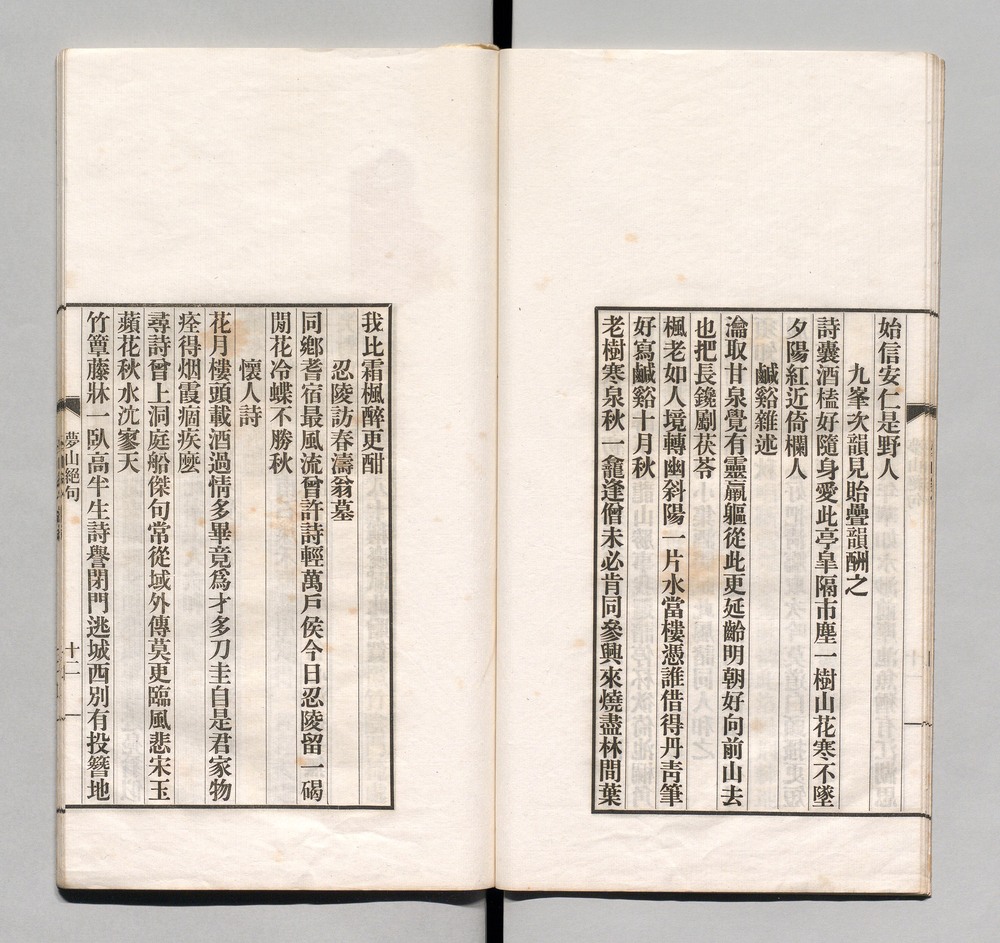 始信安仁是野人
九峯次韻見貽疊韻酬之
詩囊酒榼好隨身愛此亭臯隔市塵一樹山花寒不墜
夕陽紅近倚欄人
鹹谿雜述
瀹取甘泉覺有靈羸軀從此更延齡明朝好向前山去
也把長鑱劚茯苓
楓老如人境轉幽斜陽一片水當樓憑誰借得丹靑筆
好寫鹹谿十月秋
老樹寒泉秋一龕逢僧未必肯同參興來燒盡林間葉
我比霜楓醉更酣
忍陵訪春濤翁墓
同鄉耆宿最風流曾許詩輕萬戶侯今日忍陵留一碣
閒花冷蝶不勝秋
懷人詩
花月樓頭載酒過情多畢竟爲才多刀圭自是君家物
痊得烟霞痼疾麼
尋詩曾上洞庭船傑句常從域外傳莫更臨風悲宋玉
蘋花秋水沈寥天
竹簟藤牀一臥高半生詩譽閉門逃城西別有投簪地
夢山絕句
十二